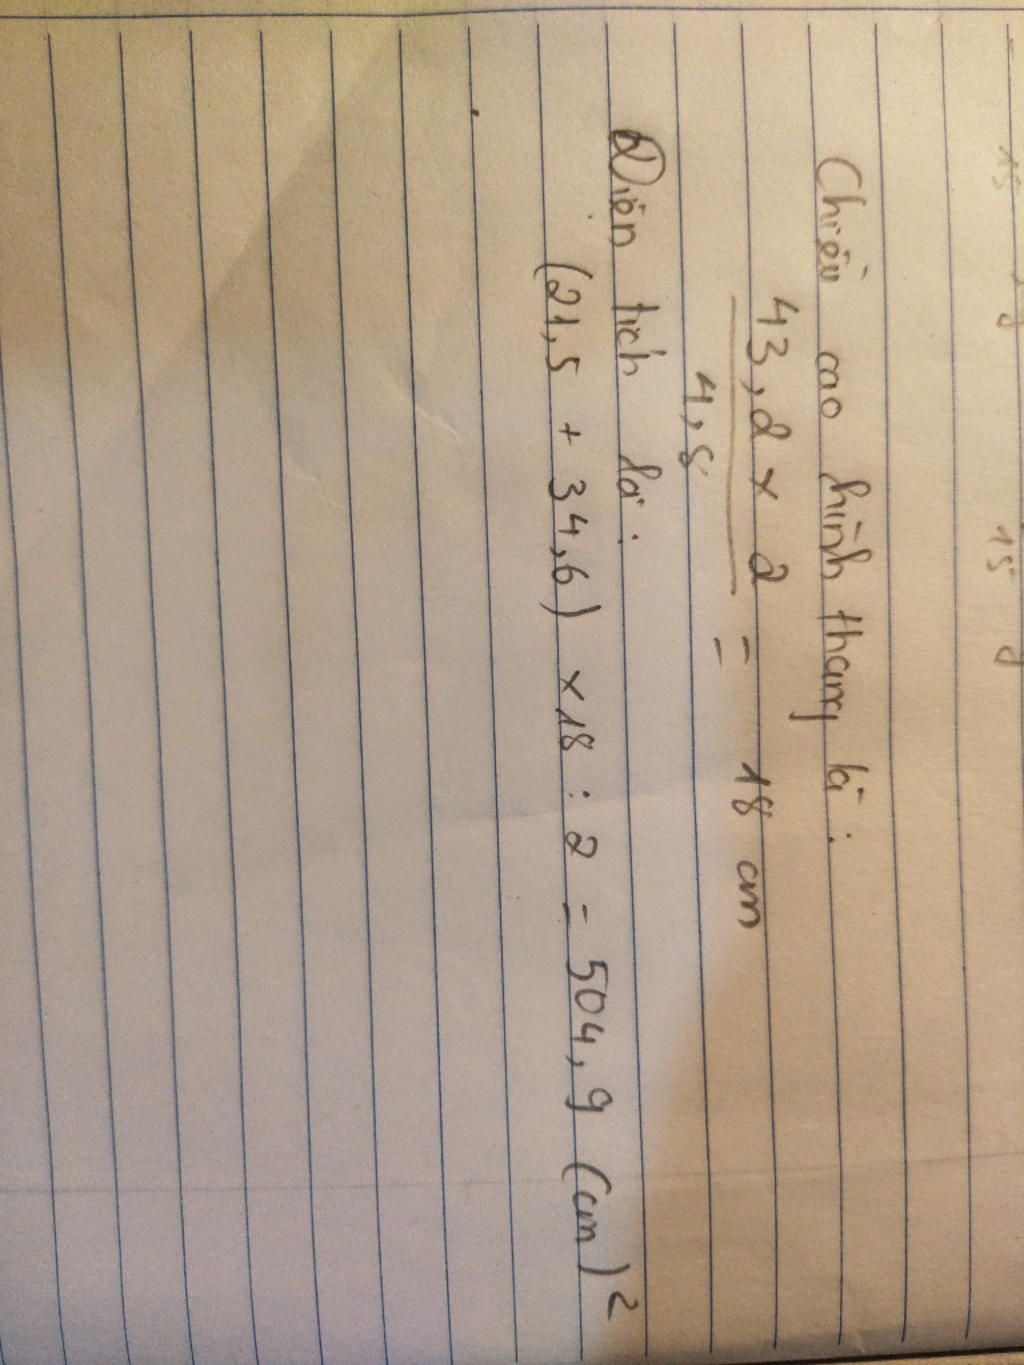 Chiều cao hình thang là:
43,2 x 2
4,8
= 18 cm
Diện tích là:
(21,5 + 34,6) x 18 : 2 = 504,9 (cm)²